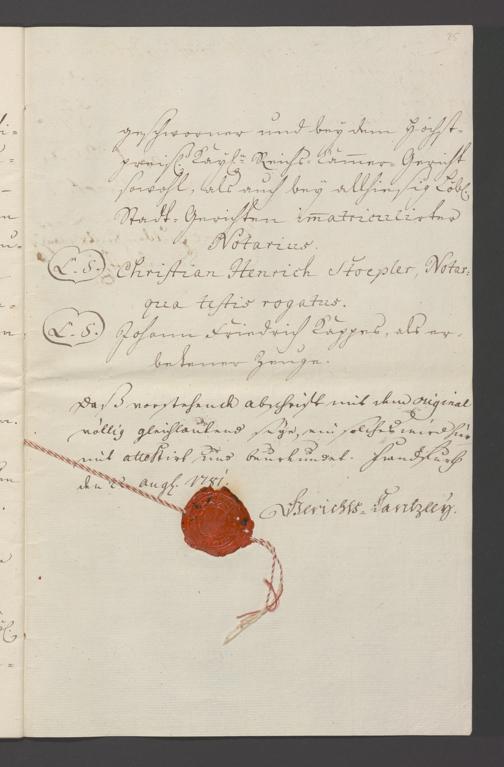 25
geschworner und bey dem Höchst-
preißl. Kayßl. Reichs-Cammer-Gericht
sowohl, als auch bey allhiesig Löbl.
Stadt-Gerichten immatriculirter
Notarius.
L. S. Christian Henrich Stoepler, Notar:
qua testis rogatus.
L. S. Johann Friedrich Kappes, als er-
betener Zeuge.
Daß vorstehende Abschrift mit dem Original
völlig gleichlautend seye, ein solches wird hier
mit attestirt und beurkundet. Franckfurth
den augt. 1781.
Gerichts-Cantzley.